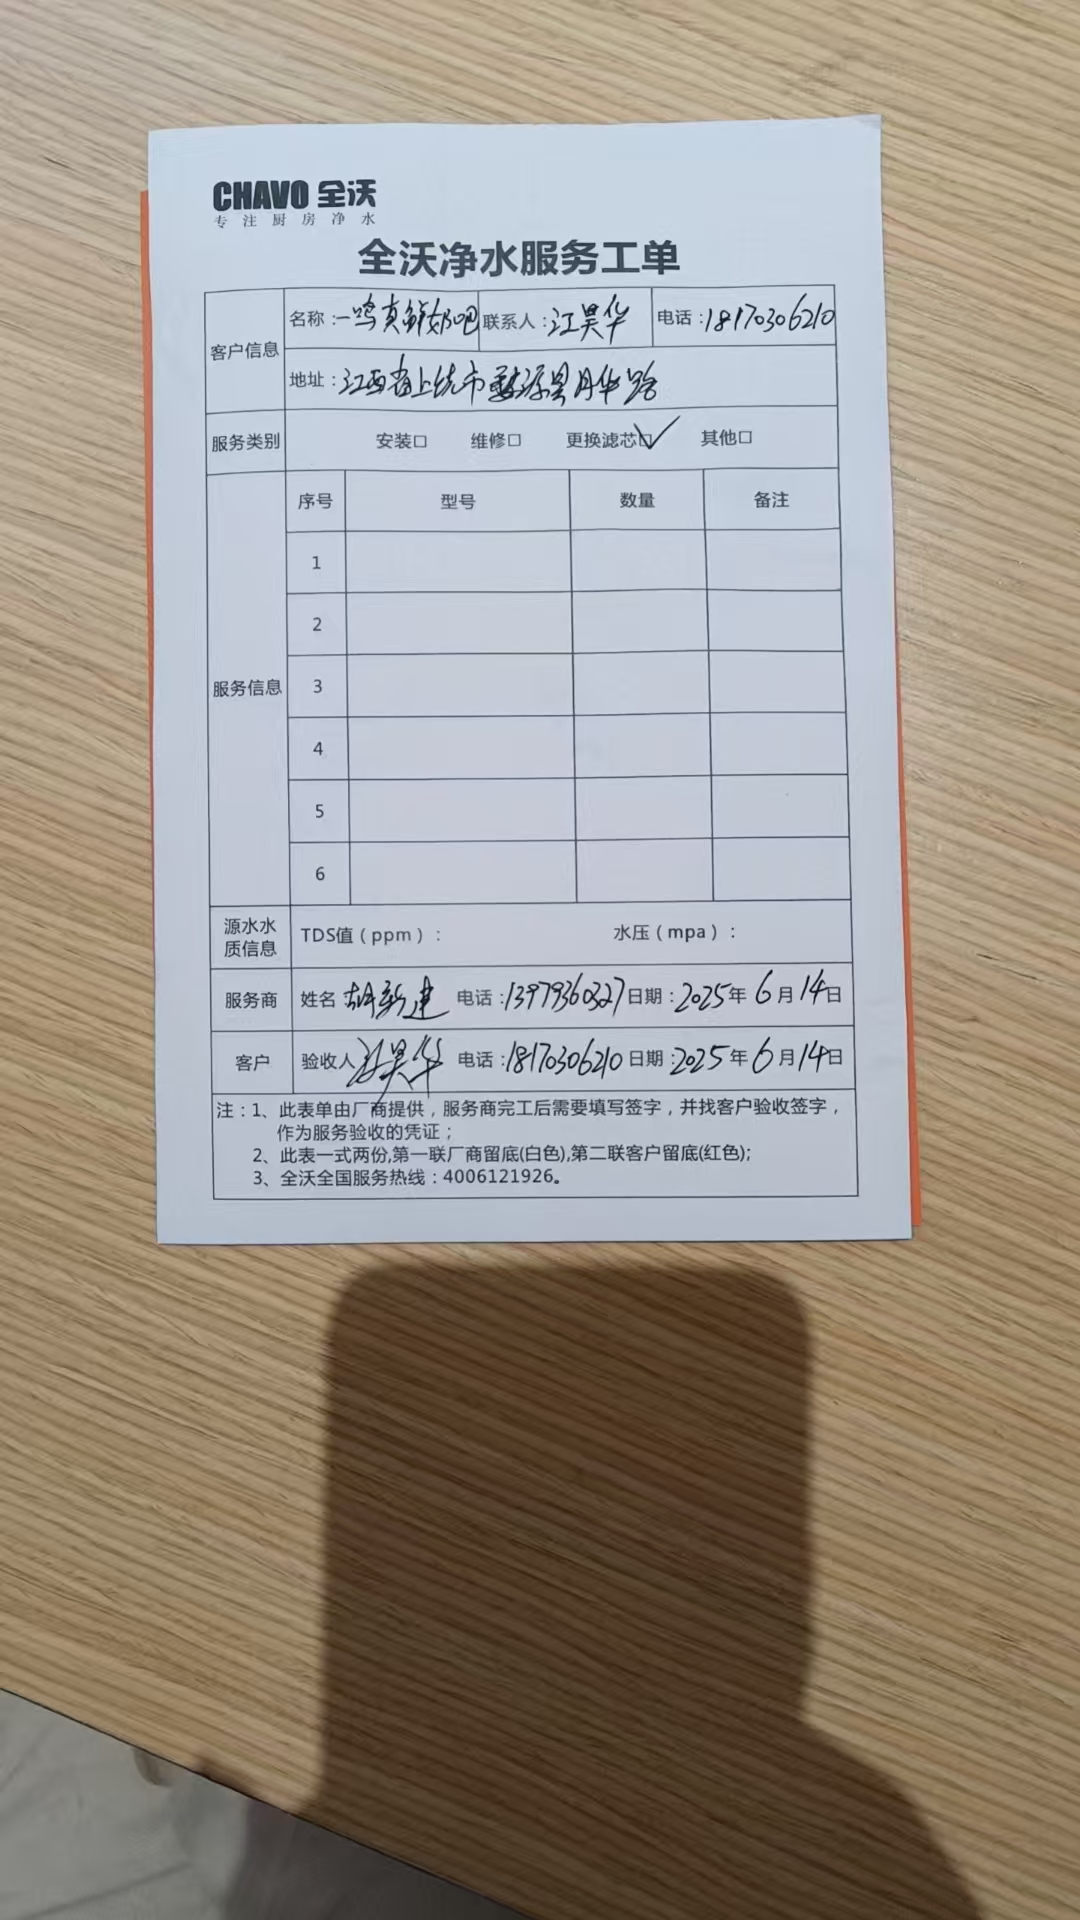 CHAVO 全沃
专注厨房净水
全沃净水服务工单
客户信息 名称：一鸣真鲜奶吧 联系人：江昊华 电话：18170306210
地址：江西省上饶市婺源县月华路
服务类别 安装□ 维修□ 更换滤芯□✓ 其他□
服务信息 序号 型号 数量 备注
1
2
3
4
5
6
源水水质信息 TDS值（ppm）： 水压（mpa）：
服务商 姓名 胡新建 电话：13979360327 日期：2025年6月14日
客户 验收人 江昊华 电话：18170306210 日期：2025年6月14日
注：1、此表单由厂商提供，服务商完工后需要填写签字，并找客户验收签字，
作为服务验收的凭证；
2、此表一式两份,第一联厂商留底(白色),第二联客户留底(红色);
3、全沃全国服务热线：4006121926。